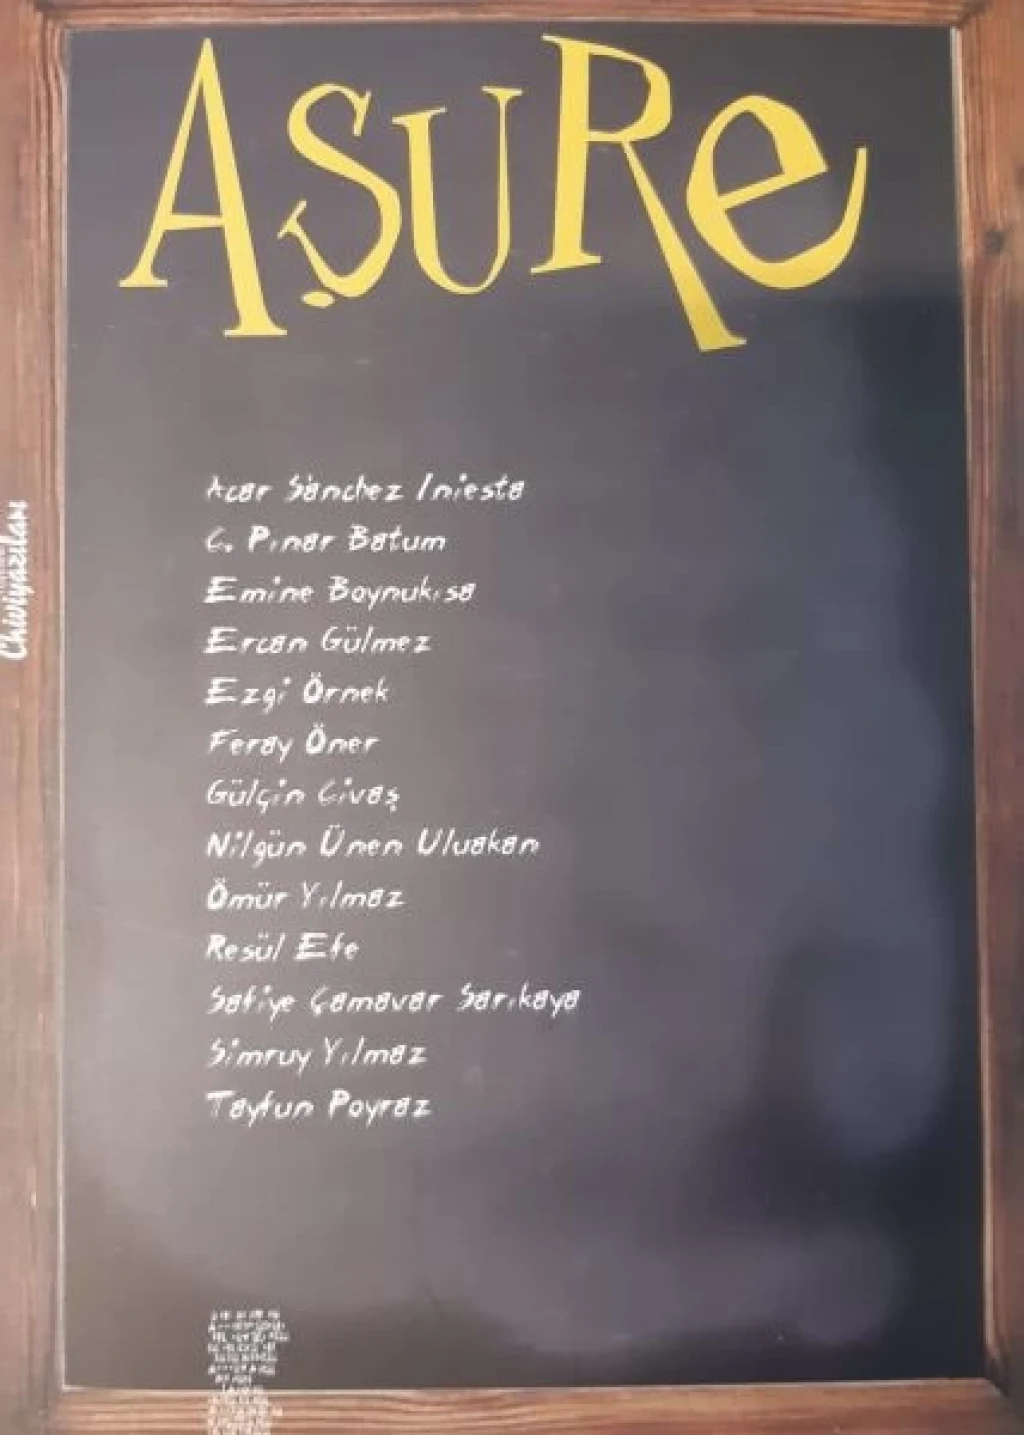 AşuRe
Acar Sànchez Iniesta
C. Pınar Batum
Emine Boynukısa
Ercan Gülmez
Ezgi Örnek
Feray Öner
Gülçin Civaş
Nilgün Ünen Uluakan
Ömür Yılmaz
Resül Efe
Safiye Çamavar Sarıkaya
Simruy Yılmaz
Tayfun Poyraz
Chiviyazıları